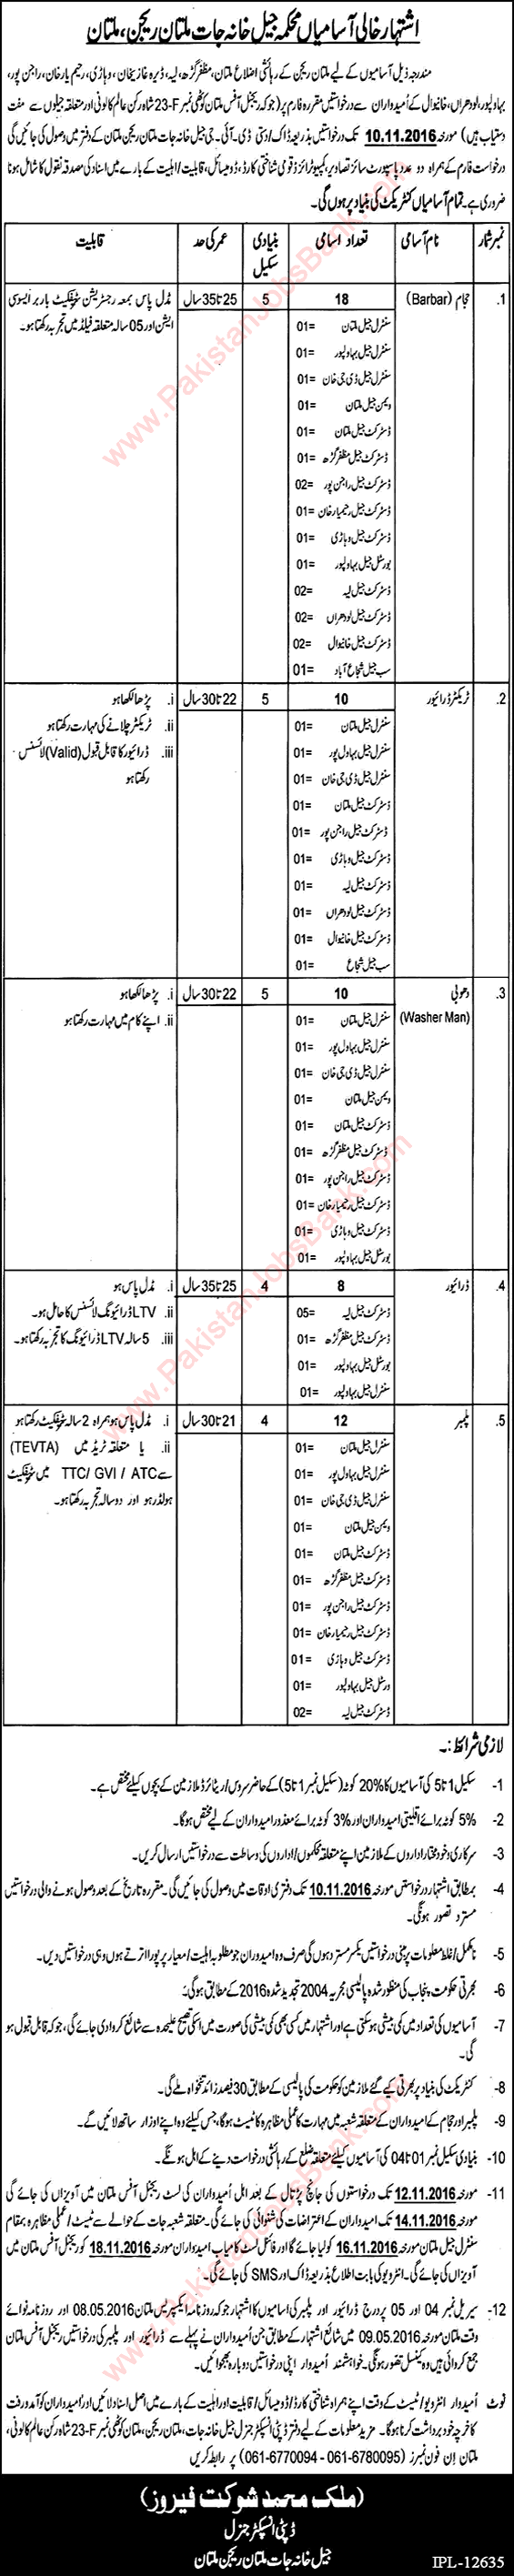 اشتہار خالی آسامیاں محکمہ جیل خانہ جات ملتان ریجن، ملتان
مندرجہ ذیل آسامیوں کے لیے ملتان ریجن کے رہائشی اضلاع ملتان، مظفر گڑھ، لیہ، ڈیرہ غازیخان، وہاڑی، رحیم یار خان، راجن پور،
بہاولپور، لودھراں، خانیوال کے اُمیدواران سے درخواستیں مقررہ فارم پر (جو کہ ریجنل آفس ملتان کوٹھی نمبر 23-F شاہ رکن عالم کالونی اور متعلقہ جیلوں سے مفت
دستیاب ہیں) مورخہ 10.11.2016 تک درخواستیں بذریعہ ڈاک/ دستی ڈی۔ آئی۔ جی جیل خانہ جات ملتان ریجن ملتان کے دفتر میں وصول کی جائیں گی
درخواست فارم کے ہمراہ دو عدد پاسپورٹ سائز تصاویر، کمپیوٹرائزڈ قومی شناختی کارڈ، ڈومیسائل، قابلیت/ اہلیت کے بارے میں اسناد کی مصدقہ نقول کا شامل ہونا
ضروری ہے۔ تمام آسامیاں کنٹریکٹ کی بنیاد پر ہوں گی۔
نمبر شمار نام آسامی تعداد اسامی بنیادی سکیل عمر کی حد قابلیت
1. حجام (Barbar) 18 5 25 تا 35 سال مڈل پاس بمعہ رجسٹریشن سرٹیفکیٹ باربر ایسوسی
ایشن اور 05 سالہ متعلقہ فیلڈ میں تجربہ رکھتا ہو۔
سنٹرل جیل ملتان =01
سنٹرل جیل بہاولپور =01
سنٹرل جیل ڈی جی خان =01
ویمن جیل ملتان =01
ڈسٹرکٹ جیل ملتان =01
ڈسٹرکٹ جیل مظفر گڑھ =01
ڈسٹرکٹ جیل راجن پور =02
ڈسٹرکٹ جیل رحیم یار خان =01
ڈسٹرکٹ جیل وہاڑی =01
بورسٹل جیل بہاولپور =01
ڈسٹرکٹ جیل لیہ =02
ڈسٹرکٹ جیل لودھراں =02
ڈسٹرکٹ جیل خانیوال =02
سب جیل شجاع آباد =01
2. ٹریکٹر ڈرائیور 10 5 22 تا 30 سال i. پڑھا لکھا ہو
ii. ٹریکٹر چلانے کی مہارت رکھتا ہو
iii. ڈرائیور کا قابل قبول (Valid) لائسنس
رکھتا ہو
سنٹرل جیل ملتان =01
سنٹرل جیل بہاول پور =01
سنٹرل جیل ڈی جی خان =01
ڈسٹرکٹ جیل ملتان =01
ڈسٹرکٹ جیل راجن پور =01
ڈسٹرکٹ جیل وہاڑی =01
ڈسٹرکٹ جیل لیہ =01
ڈسٹرکٹ جیل لودھراں =01
ڈسٹرکٹ جیل خانیوال =01
سب جیل شجاع =01
3. دھوبی (Washer Man) 10 5 22 تا 30 سال i. پڑھا لکھا ہو
ii. اپنے کام میں مہارت رکھتا ہو
سنٹرل جیل ملتان =01
سنٹرل جیل بہاول پور =01
سنٹرل جیل ڈی جی خان =01
ویمن جیل ملتان =01
ڈسٹرکٹ جیل ملتان =01
ڈسٹرکٹ جیل مظفر گڑھ =01
ڈسٹرکٹ جیل راجن پور =01
ڈسٹرکٹ جیل رحیم یار خان =01
ڈسٹرکٹ جیل وہاڑی =01
بورسٹل جیل بہاولپور =01
4. ڈرائیور 8 4 25 تا 35 سال i. مڈل پاس ہو
ii. LTV ڈرائیونگ لائسنس کا حامل ہو۔
iii. 5 سالہ LTV ڈرائیونگ کا تجربہ رکھتا ہو۔
ڈسٹرکٹ جیل لیہ =05
ڈسٹرکٹ جیل مظفر گڑھ =01
بورسٹل جیل بہاولپور =01
سنٹرل جیل بہاولپور =01
5. پلمبر 12 4 21 تا 30 سال i. مڈل پاس ہو ہمراہ 2 سالہ سرٹیفکیٹ رکھتا ہو
ii. یا متعلقہ ٹریڈ میں (TEVTA)
سے TTC/ GVI / ATC میں سرٹیفکیٹ
ہولڈر ہو اور دو سالہ تجربہ رکھتا ہو۔
سنٹرل جیل ملتان =01
سنٹرل جیل بہاول پور =01
سنٹرل جیل ڈی جی خان =01
ویمن جیل ملتان =01
ڈسٹرکٹ جیل ملتان =01
ڈسٹرکٹ جیل مظفر گڑھ =01
ڈسٹرکٹ جیل راجن پور =01
ڈسٹرکٹ جیل رحیم یار خان =01
ڈسٹرکٹ جیل وہاڑی =01
ورسٹل جیل بہاولپور =01
ڈسٹرکٹ جیل لیہ =02
لازمی شرائط:۔
1- سکیل 1 تا 5 کی آسامیوں کا 20% کوٹہ (سکیل نمبر 1 تا 5) کے حاضر سروس/ ریٹائرڈ ملازمین کے بچوں کیلئے مختص ہے۔
2- 5% کوٹہ برائے اقلیتی امیدواران اور 3% کوٹہ برائے معذور امیدواران کے لیے مختص ہوگا۔
3- سرکاری و خود مختار اداروں کے ملازمین اپنے متعلقہ محکموں/ اداروں کی وساطت سے درخواستیں ارسال کریں۔
4- بمطابق اشتہار درخواستیں مورخہ 10.11.2016 تک دفتری اوقات میں وصول کی جائیں گی۔ مقررہ تاریخ کے بعد وصول ہونے والی درخواستیں
مسترد تصور ہونگی۔
5- نامکمل/ غلط معلومات پر مبنی درخواستیں یکسر مسترد ہوں گی صرف وہ امیدواران جو مطلوبہ اہلیت/ معیار پر پورا اترتے ہوں وہی درخواستیں دیں۔
6- بھرتی حکومت پنجاب کی منظور شدہ پالیسی مجریہ 2004 تجدید شدہ 2016 کے مطابق ہوگی۔
7- آسامیوں کی تعداد میں کمی بیشی ہوسکتی ہے اور اشتہار میں کسی بھی کمی بیشی کی صورت میں اسکی تصحیح علیحدہ سے شائع کروا دی جائے گی، جو کہ قابل قبول ہو
گی۔
8- کنٹریکٹ کی بنیاد پر بھرتی کیے گئے ملازمین کو حکومت کی پالیسی کے مطابق 30 فیصد زائد تنخواہ ملے گی۔
9- پلمبر اور حجام کے امیدواران کے متعلقہ شعبہ میں مہارت کا عملی مظاہرہ کا ٹیسٹ ہوگا، جس کیلئے وہ اپنے اوزار ساتھ لائیں گے۔
10- بنیادی سکیل نمبر 01 تا 04 کی آسامیوں کیلئے متعلقہ ضلع کے رہائشی درخواست دینے کے اہل ہونگے۔
11- مورخہ 12.11.2016 تک درخواستوں کی جانچ پڑتال کے بعد اہل اُمیدواران کی لسٹ ریجنل آفس ملتان میں آویزاں کی جائے گی
مورخہ 14.11.2016 تک امیدواران کے اعتراضات کی شنوائی کی جائے گی۔ متعلقہ شعبہ جات کے حوالے سے ٹیسٹ/ عملی مظاہرہ بمقام
سنٹرل جیل ملتان مورخہ 16.11.2016 کو لیا جائے گا اور فائنل لسٹ کامیاب امیدواران مورخہ 18.11.2016 کو ریجنل آفس ملتان میں
آویزاں کی جائے گی۔ انٹرویو کی بابت اطلاع بذریعہ ڈاک اور SMS کی جائے گی۔
12- سیریل نمبر 04 اور 05 پر درج ڈرائیور اور پلمبر کی اسامیوں کا اشتہار جو کہ روزنامہ ایکسپریس ملتان 08.05.2016 اور روزنامہ نوائے
وقت ملتان مورخہ 09.05.2016 میں شائع اشتہار کے مطابق جن اُمیدواران نے پہلے سے ڈرائیور اور پلمبر کی درخواستیں ریجنل آفس ملتان
جمع کروائی ہیں وہ کینسل تصور ہونگی۔ خواہشمند اُمیدوار اپنی درخواستیں دوبارہ بھجوائیں۔
نوٹ اُمیدوار انٹرویو/ ٹیسٹ کے وقت اپنے ہمراہ شناختی کارڈ/ ڈومیسائل/ قابلیت اور اہلیت کے بارے میں اصل اسناد لائیں اور اُمیدواران کو آمد و رفت
کا خرچہ خود برداشت کرنا ہوگا۔ مزید معلومات کے لیے دفتر ڈپٹی انسپکٹر جنرل جیل خانہ جات، ملتان ریجن، ملتان کوٹھی نمبر 23-F شاہ رکن عالم کالونی،
ملتان اِن فون نمبرز (061-6770094 - 061-6780095) پر رابطہ کریں
(ملک محمد شوکت فیروز)
ڈپٹی انسپکٹر جنرل
جیل خانہ جات ملتان ریجن ملتان
IPL-12635
www.PakistanJobsBank.com
www.PakistanJobsBank.com
www.PakistanJobsBank.com